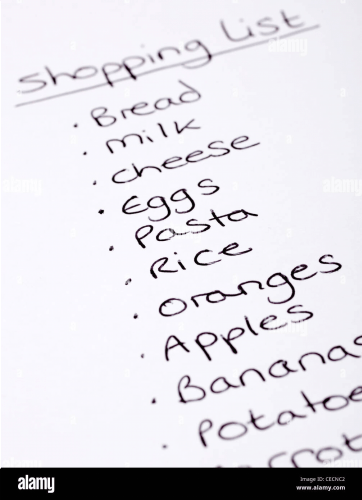 Shopping List
• Bread
• Milk
• Cheese
• Eggs
• Pasta
• Rice
• Oranges
• Apples
• Bananas
• Potatoe
arrot
alamy
alamy
Image ID: CECNC2
www.alamy.com